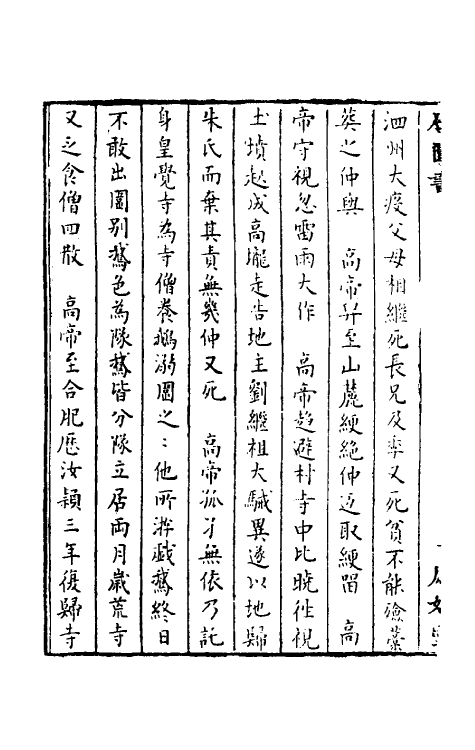 泗州大疫父母相繼死長兄及季又死貧不能殮藁
葬之仲與　高帝舁至山麓綆絕仲返取綆畱　高
帝守視忽雷雨大作　高帝趋避村寺中比曉徃視
土墳起成高壠走告地主劉繼祖大駴異遂以地歸
朱氏而棄其責無幾仲又死　高帝孤孑無依乃託
身皇覺寺為寺僧養鵝溺圖之：他所滸戯鵞終日
不敢出圖別鵞色為隊鵞皆分隊立居両月嵗荒寺
又乏食僧四散　高帝至合肥歴汝潁三年復歸寺